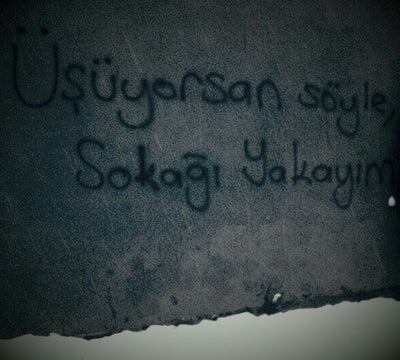 Üşüyorsan söyle,
Sokağı Yakayım